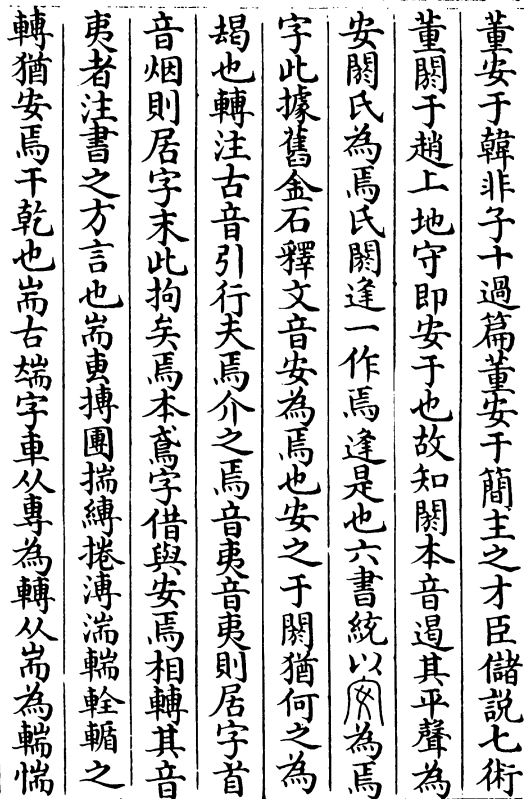 董安于韓非子十過篇董安于簡主之才臣儲説七術
董閼于趙上地守即安于也故知閼本音遏其平聲為
安閼氏為焉氏閼逢一作焉逢是也六書統以為焉
字此據舊金石釋文音安為焉也安之于閼猶何之為
曷也轉注古音引行夫焉介之焉音夷音夷則居字首
音烟則居字末此拘矣焉本鳶字借與安焉相轉其音
夷者注書之方言也耑叀摶團揣縳捲漙湍輲輇輴之
轉猶安焉干乾也耑古端字車从專為轉从耑為輲惴